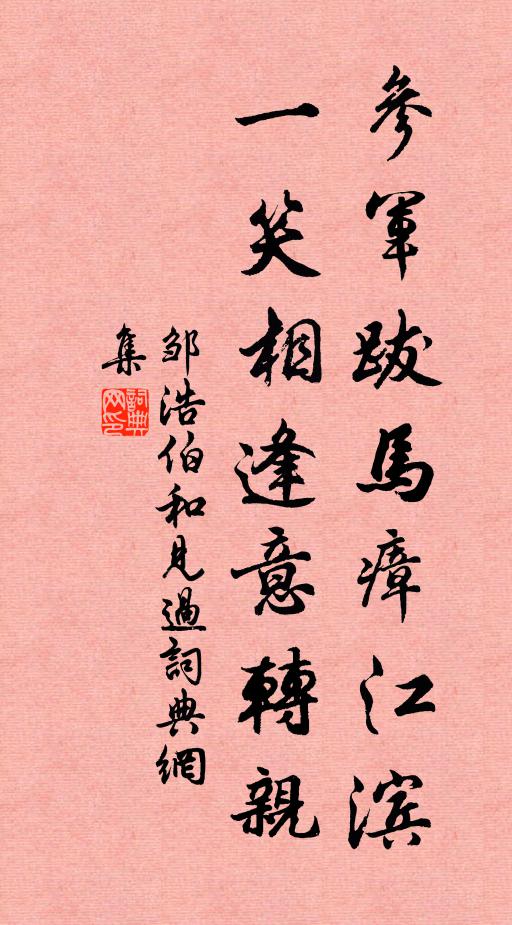 參軍跋馬瘴江滨
一笑相逢意轉親
邹浩伯和見過詞典網
集
詞典
网印